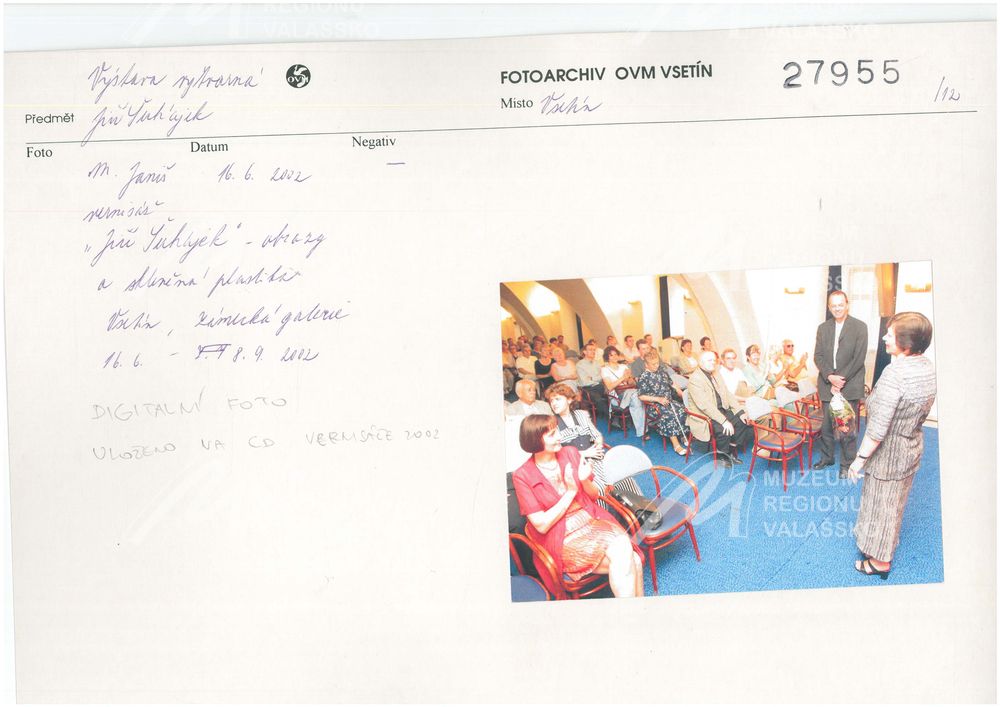 Výstava výtvarná
OVM
FOTOARCHIV OVM VSETÍN
27955
Předmět
Jiří Šuhájek
Místo Vsetín
/12
Foto
Datum
Negativ
M. Janiš 16. 6. 2002 —
vernisáž
„Jiří Šuhájek" - obrazy
a skleněná plastika
Vsetín, zámecká galerie
16. 6. - 8. 9. 2002
DIGITALNÍ FOTO
ULOŽENO NA CD VERNISÁŽE 2002
MUZEUM
REGIONU
VALAŠSKO